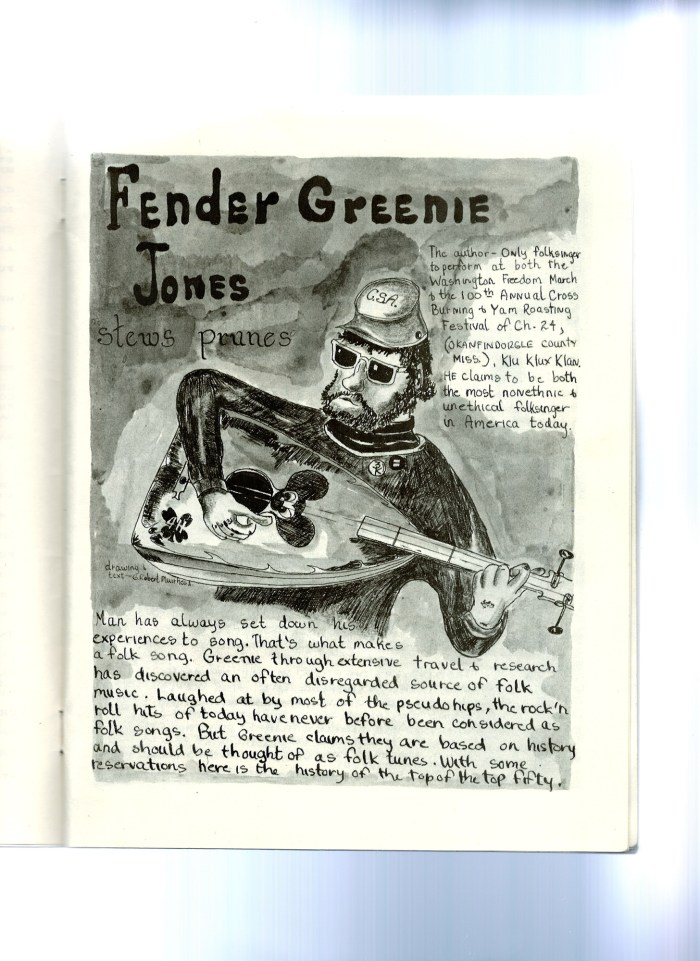 Fender Greenie
Jones
stews prunes
The author - Only folksinger
to perform at both the
Washington Freedom March
& the 100th Annual Cross
Burning & Yam Roasting
Festival of Ch. 24,
(OKANFINDORGLE COUNTY
MISS.), Klu Klux Klan.
HE claims to be both
the most nonethnic &
unethical folksinger
in America today.
C.S.A.
drawing &
text - Robert
Man has always set down his
experiences to song. That's what makes
a folk song. Greenie through extensive travel & research
has discovered an often disregarded source of folk
music. Laughed at by most of the pseudohips, the rock'n
roll hits of today have never before been considered as
folk songs. But Greenie claims they are based on history
and should be thought of as folk tunes. With some
reservations here is the history of the top of the top fifty.